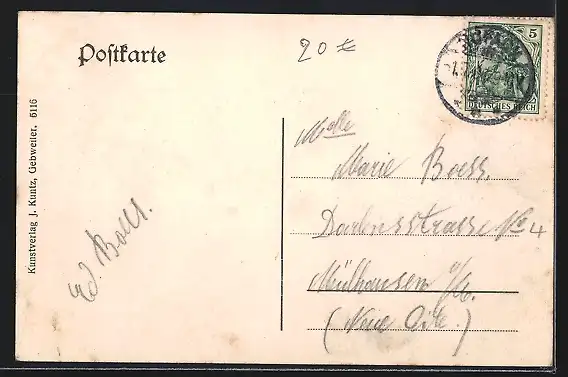 Postkarte
20 €
5
DEUTSCHES REICH
Mlle
Marie Boess.
strasse No 4
Mülhausen i/E.
(Neue Cité.)
Ed. Boess.
Kunstverlag J. Kuntz, Gebweiler, 6116